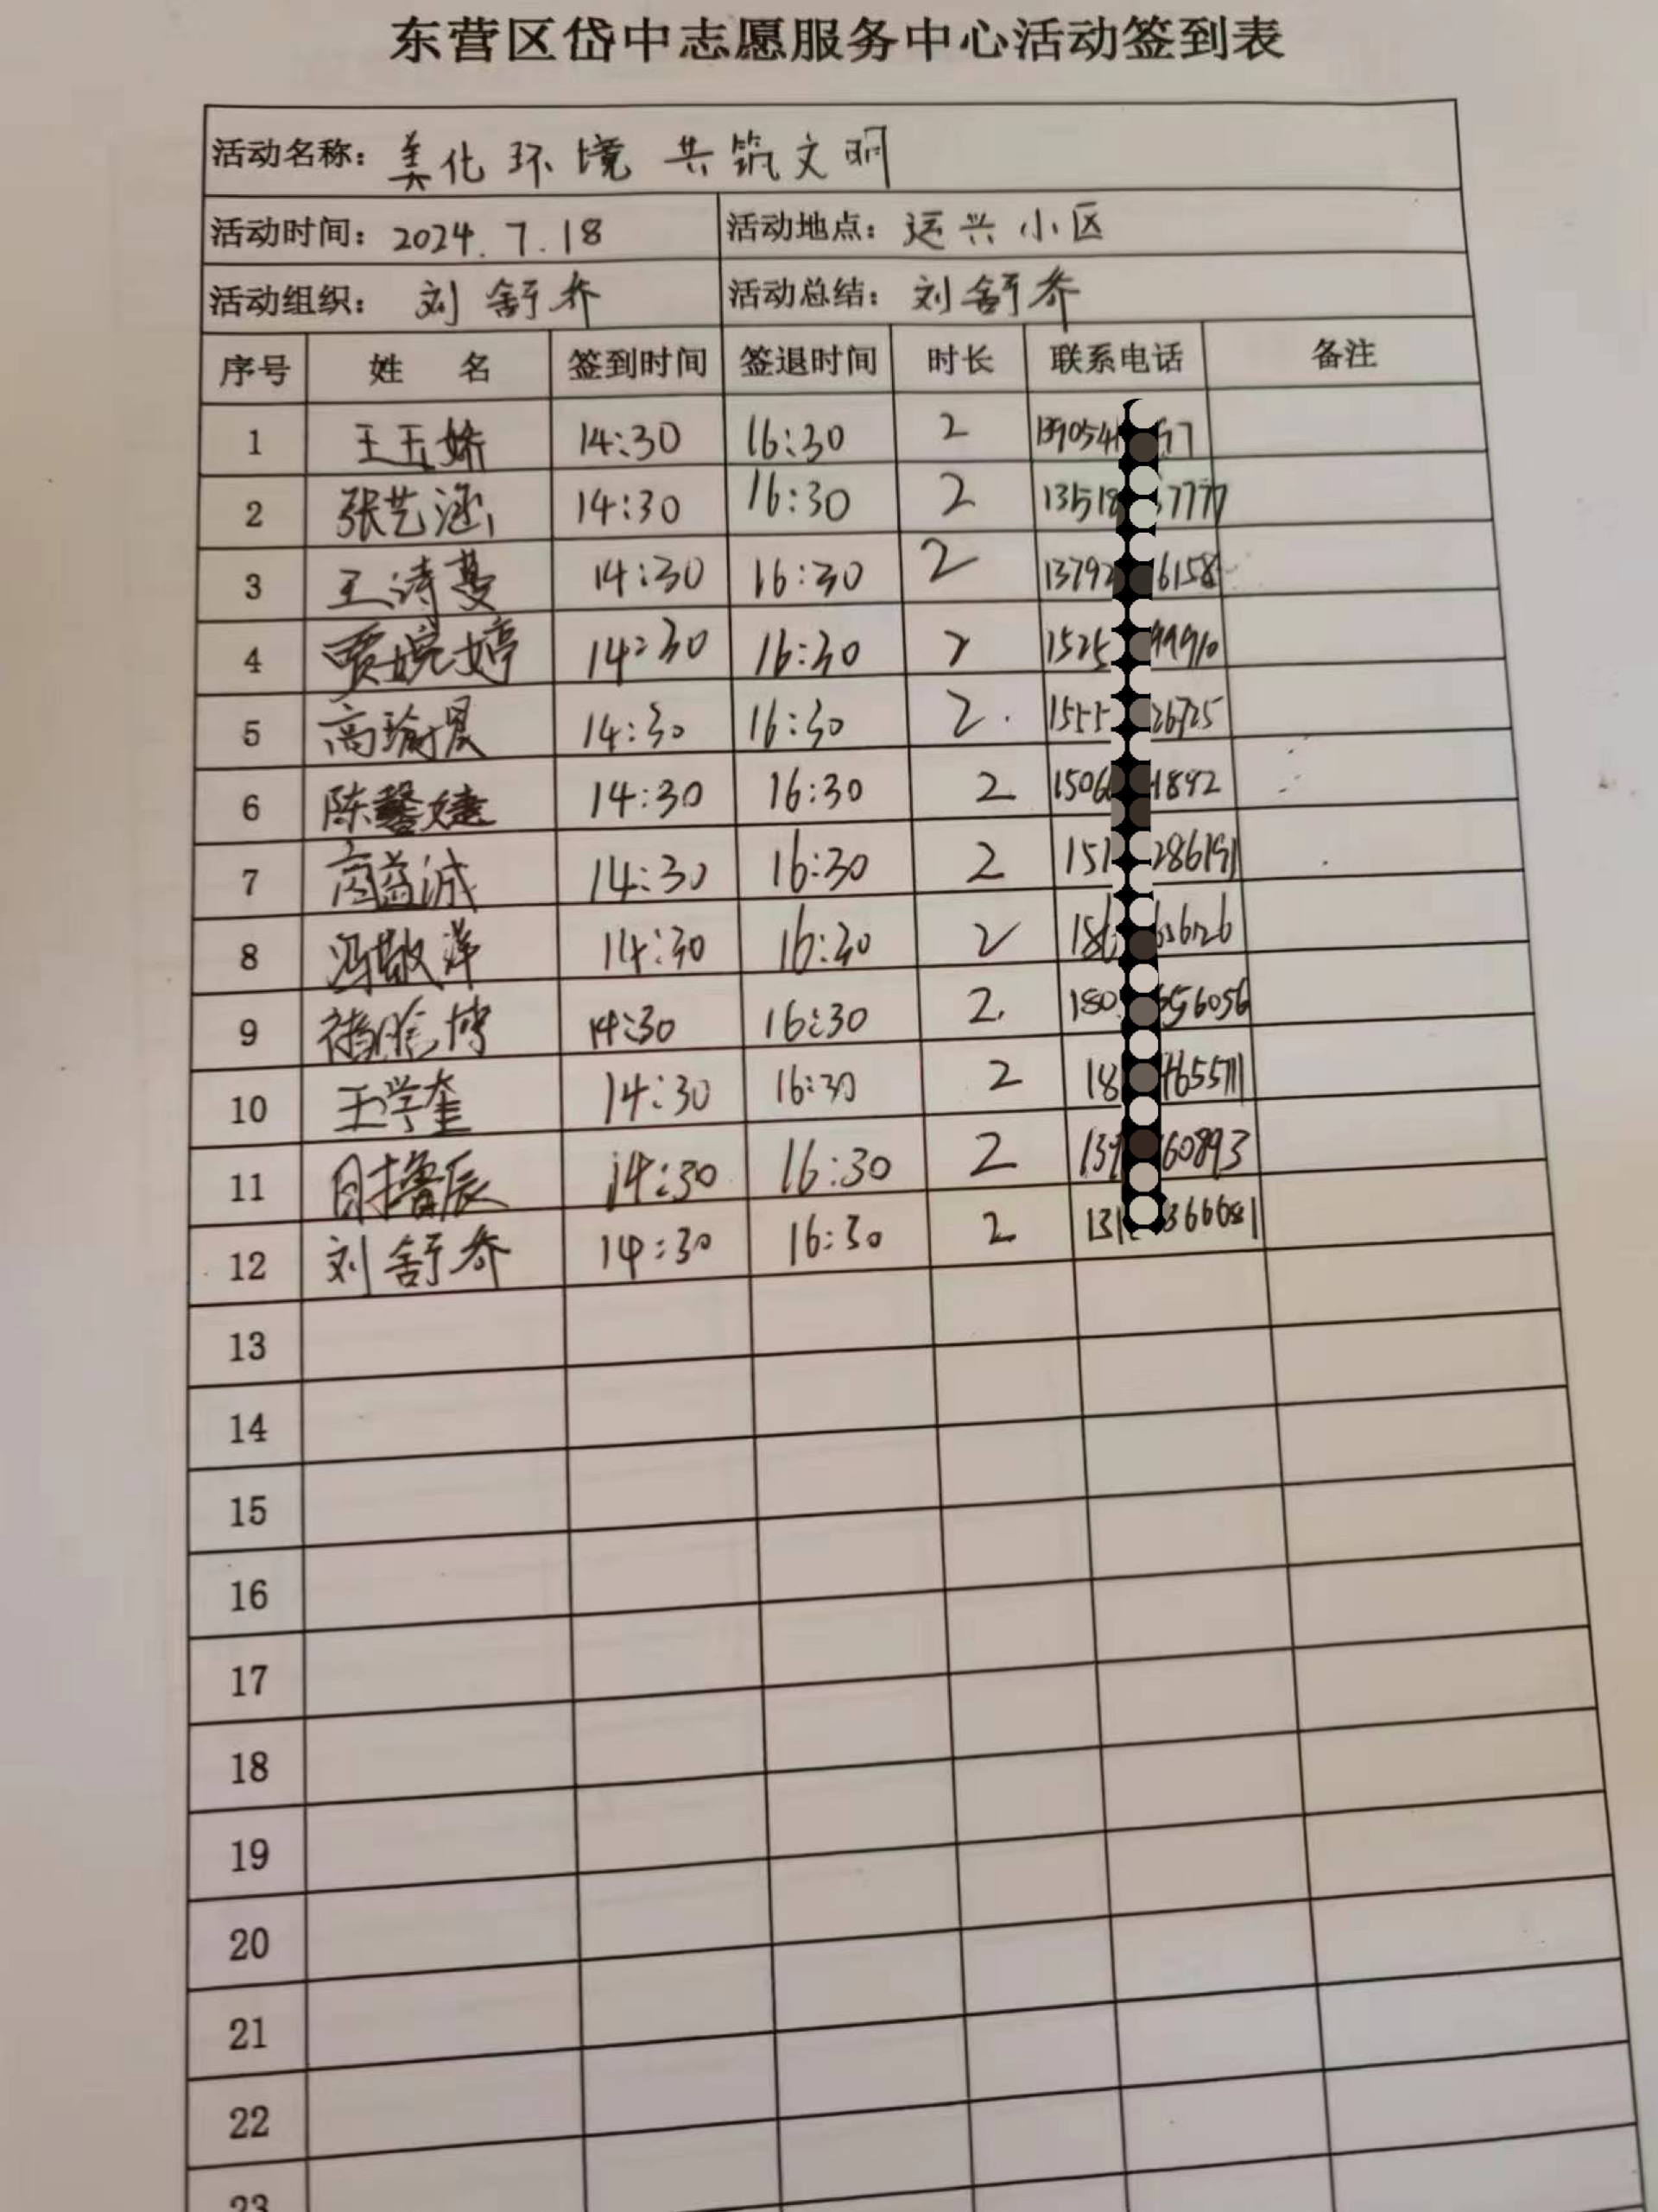 东营区岱中志愿服务中心活动签到表
活动名称：美化环境 共筑文明
活动时间：2024.7.18 活动地点：运兴小区
活动组织：刘舒乔 活动总结：刘舒乔
序号 姓 名 签到时间 签退时间 时长 联系电话 备注
1 王玉娇 14:30 16:30 2 1390541 57
2 张艺涵 14:30 16:30 2 13518 57777
3 王诗蔓 14:30 16:30 2 13792 6158
4 贾婉婷 14:30 16:30 2 1525 99910
5 高瑜晨 14:30 16:30 2. 1555 26725
6 陈馨婕 14:30 16:30 2 1506 1892
7 高益诚 14:30 16:30 2 151 286191
8 冯敬洋 14:30 16:30 2 186
9 14:30 16:30 2. 180 556056
10 王学奎 14:30 16:30 2 18 465571
11 14:30 16:30 2 139 60893
12 刘舒乔 14:30 16:30 2 131 366681
13
14
15
16
17
18
19
20
21
22
23